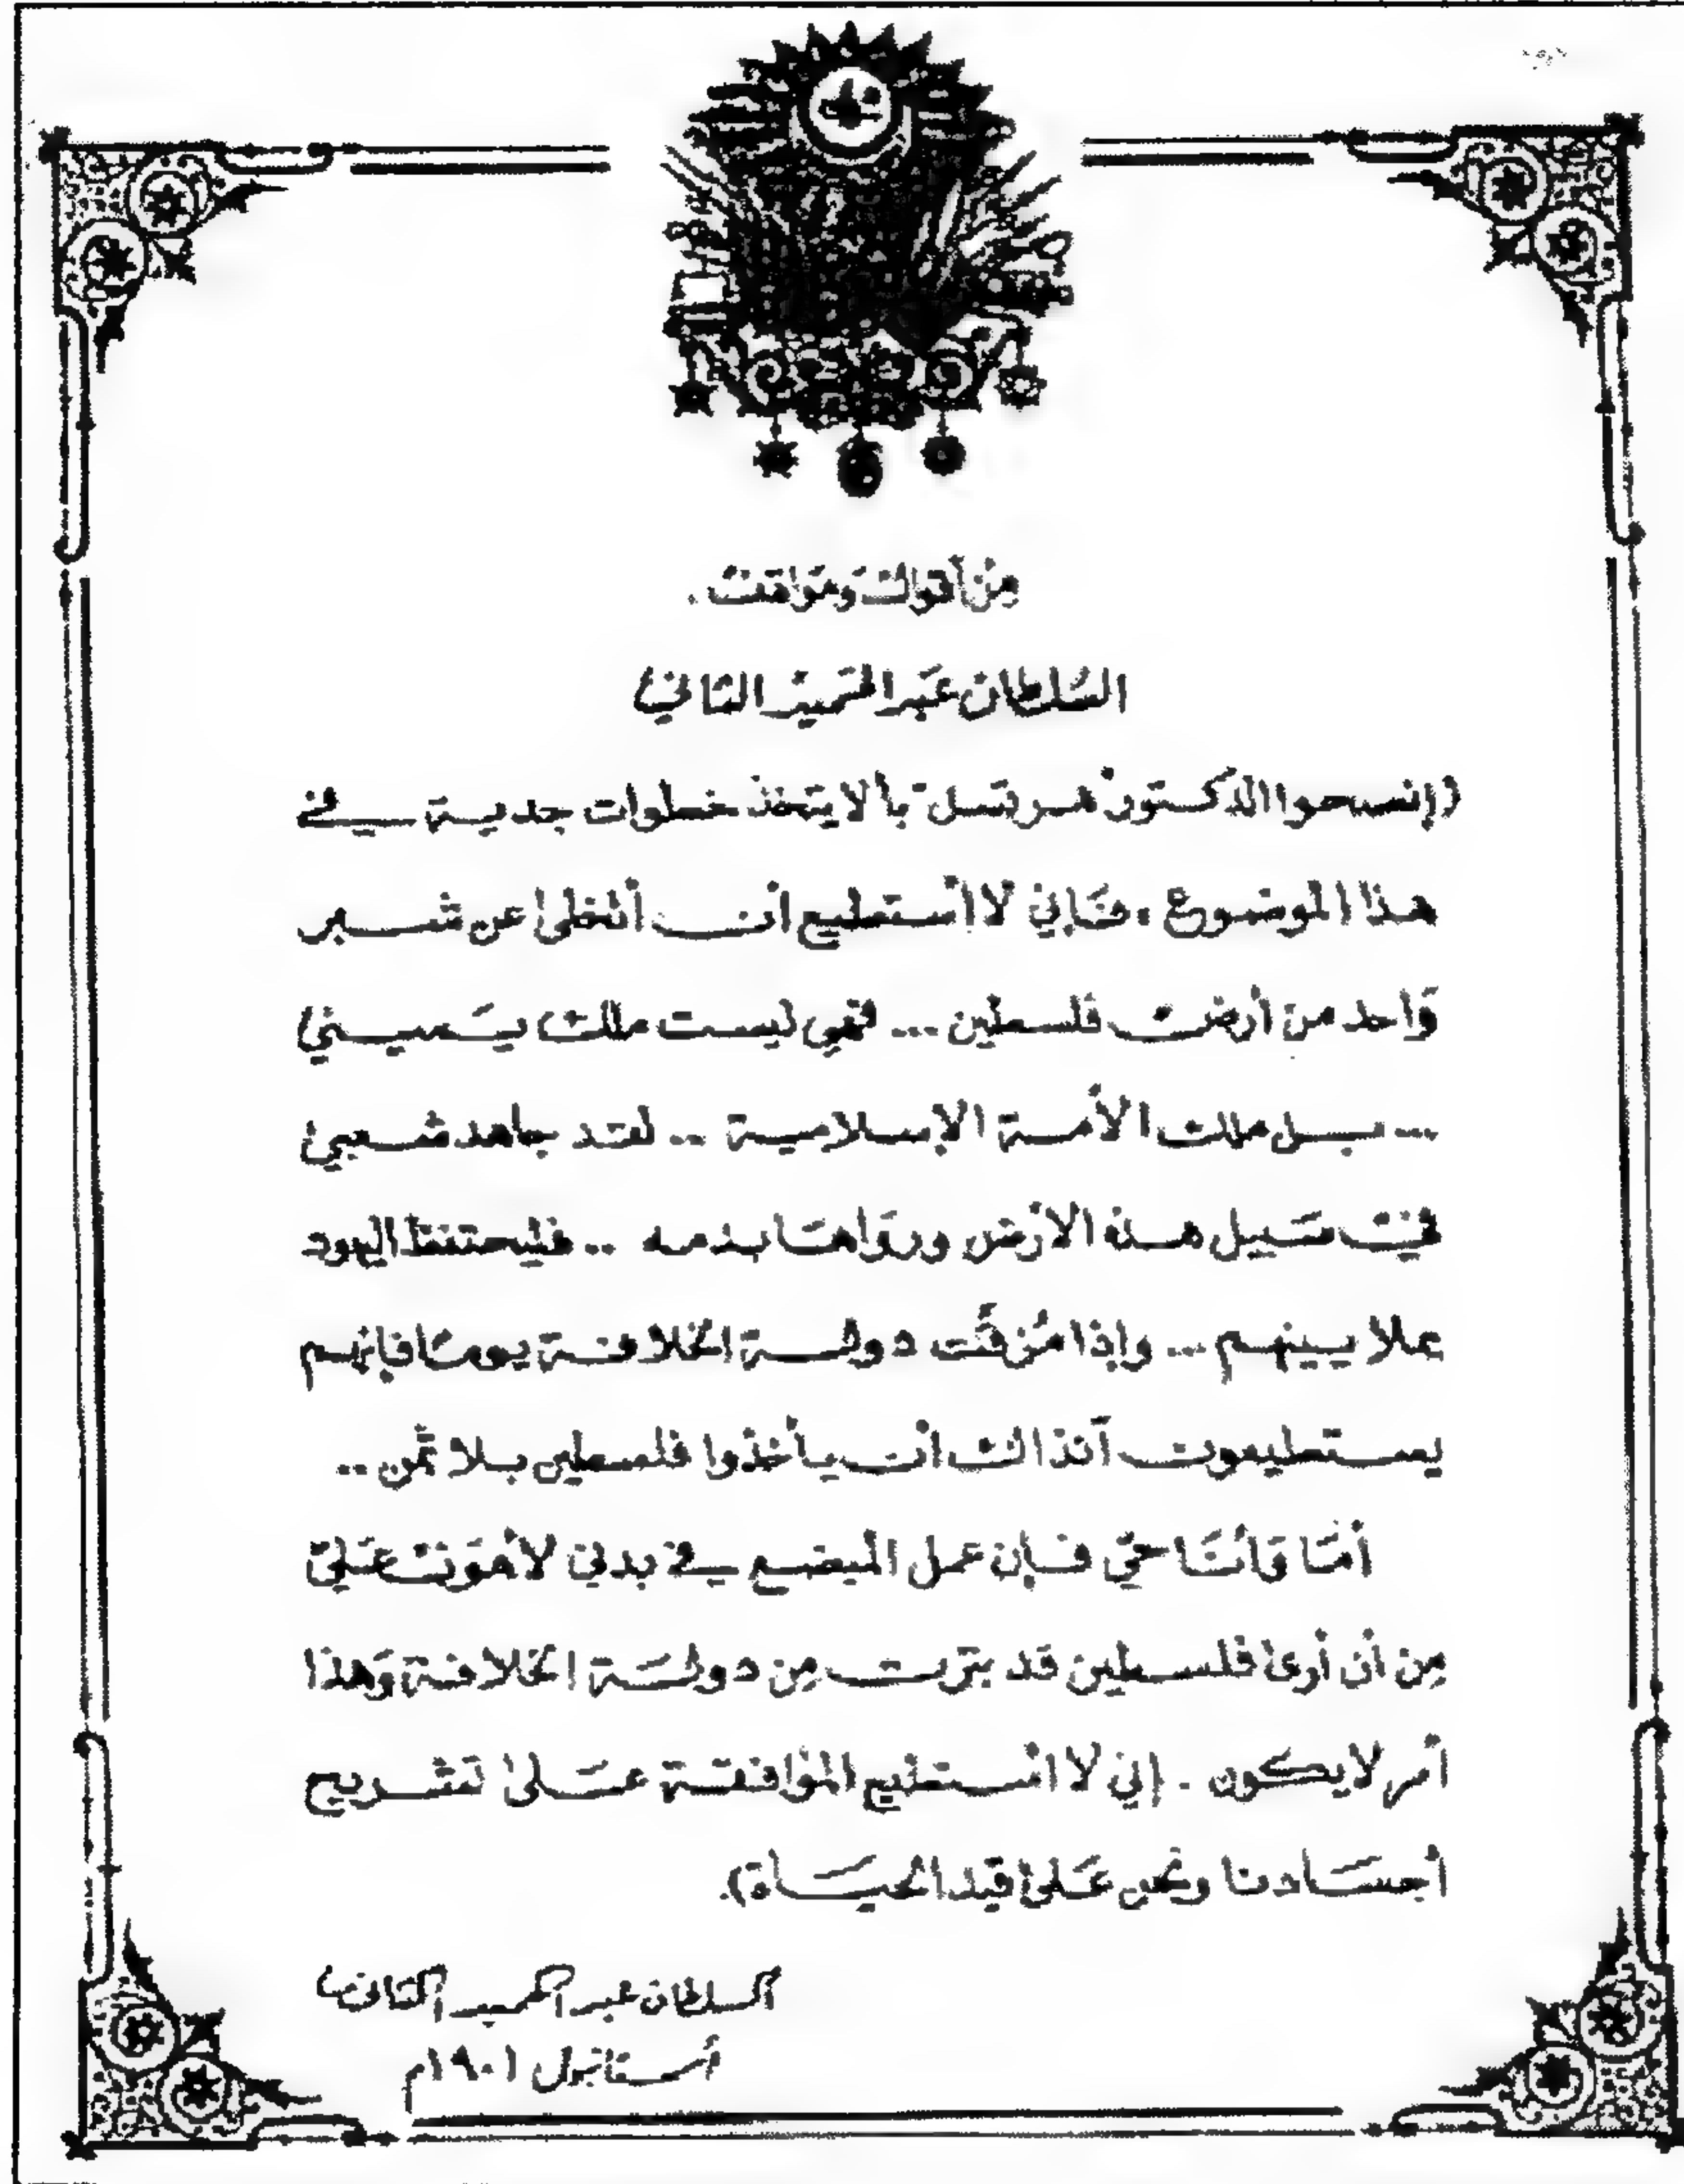 مِن أقوال وَمَواقف.
السُلطان عَبد الحَميد الثاني
(إنصحوا الدكتور "هرتسل" بألا يتخذ خطوات جدية في
هذا الموضوع، فَإني لا أستطيع أن أتخلى عن شبر
وَاحد من أرض فلسطين ... فهي ليست ملك يَميني
... بل ملك الأمة الإسلامية .. لقد جاهد شعبي
في سَبيل هذه الارض وروَاهَا بدمه .. فليحتفظ اليهود
بملايينهم ... وإذا مُزقت دولة الخلافة يومًا فإنهم
يستطيعون آنذاك أن يأخذوا فلسطين بلا ثمن ..
أمَا وَأنَا حيّ فإن عمل المبضع في بدني لأهوَن عَليّ
مِن أن أرى فلسطين قد بترت مِن دولَة الخلافة وَهذا
أمر لا يكون . إني لا أستطيع الموافقة عَلى تشريح
أجسَادنا ونحن عَلى قيد الحيَاة).
السلطان عبد الحميد الثاني
أستانبول ١٩٠١م